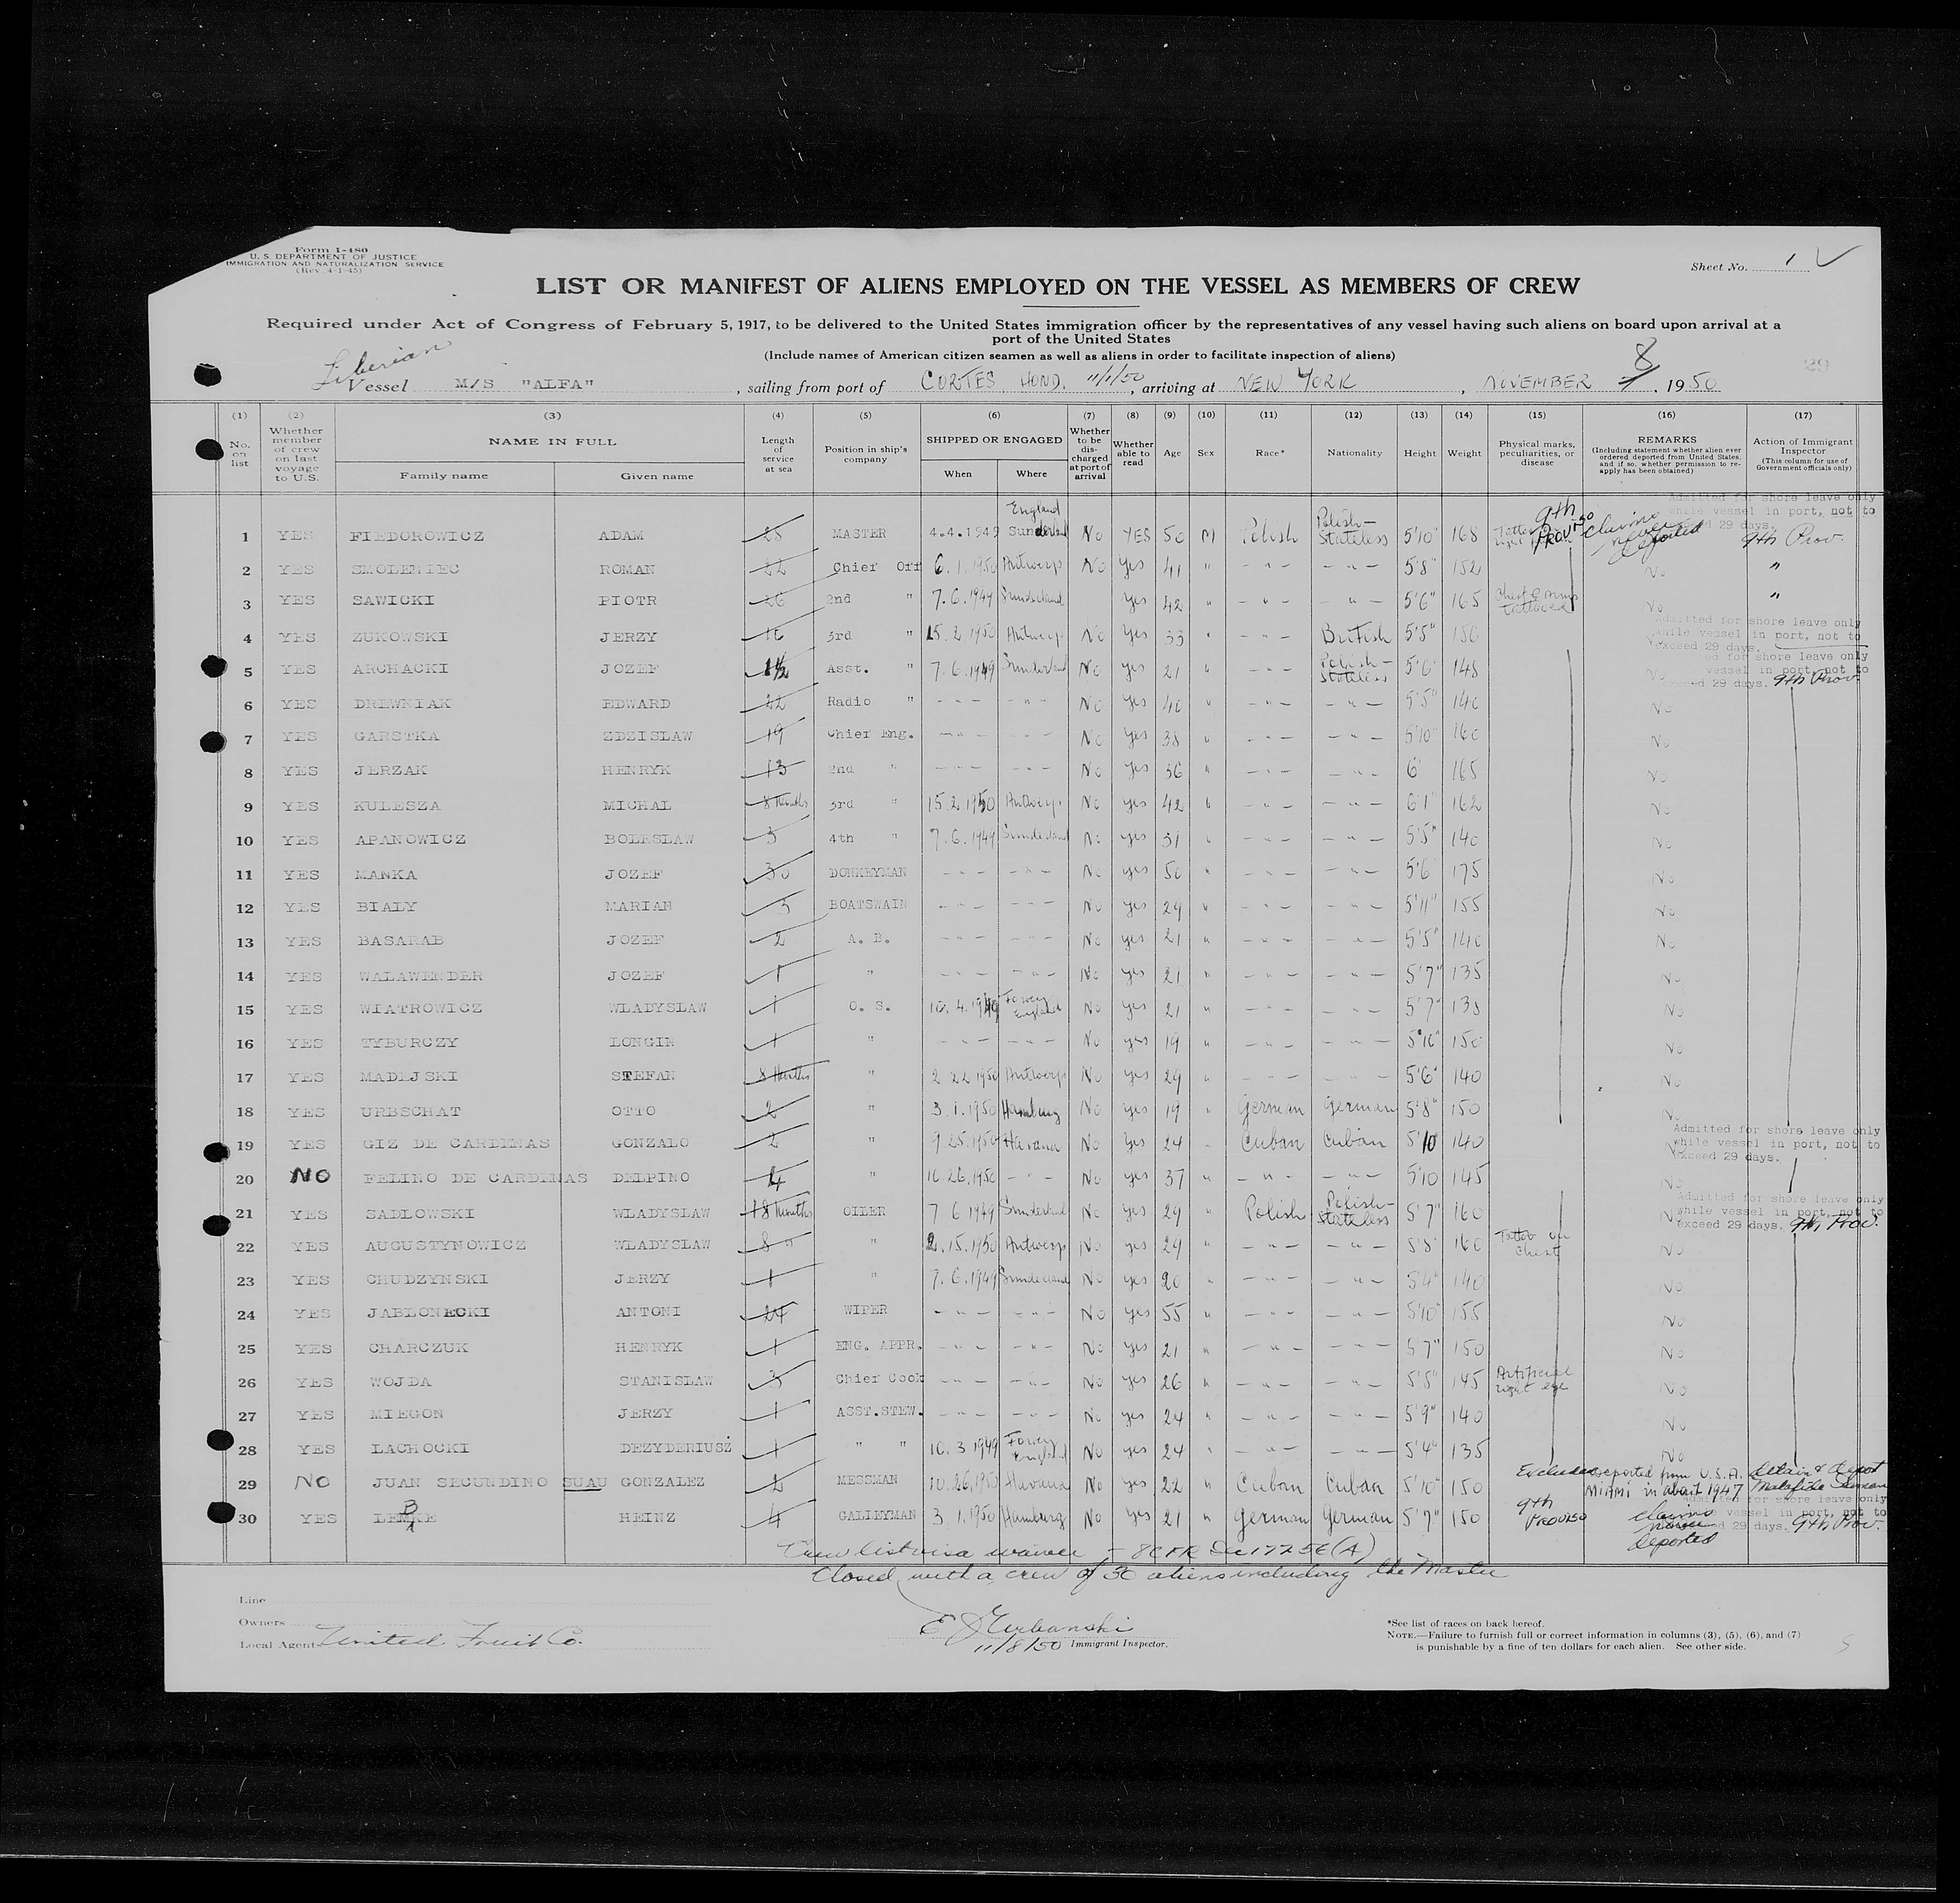 Form I-480
U. S. DEPARTMENT OF JUSTICE
IMMIGRATION AND NATURALIZATION SERVICE
(Rev. 4-1-45)
Sheet No. 1
LIST OR MANIFEST OF ALIENS EMPLOYED ON THE VESSEL AS MEMBERS OF CREW
Required under Act of Congress of February 5, 1917, to be delivered to the United States immigration officer by the representatives of any vessel having such aliens on board upon arrival at a
port of the United States
(Include names of American citizen seamen as well as aliens in order to facilitate inspection of aliens)
Liberian
Vessel M/S "ALFA", sailing from port of CORTES HOND. 11/1/50, arriving at NEW YORK, NOVEMBER 8, 1950
29
(1) (2) (3) (4) (5) (6) (7) (8) (9) (10) (11) (12) (13) (14) (15) (16) (17)
No. on list
Whether member of crew on last voyage to U.S.
NAME IN FULL
Family name Given name
Length of service at sea
Position in ship's company
SHIPPED OR ENGAGED
When Where
Whether to be discharged at port of arrival
Whether able to read
Age
Sex
Race*
Nationality
Height
Weight
Physical marks, peculiarities, or disease
REMARKS
(Including statement whether alien ever ordered deported from United States, and if so, whether permission to reapply has been obtained)
Action of Immigrant Inspector
(This column for use of Government officials only)
Admitted for shore leave only
while vessel in port, not to
exceed 29 days.
1 YES FIEDOROWICZ ADAM 28 MASTER 4.4.1949 England Sunderland No YES 50 M Polish Polish-Stateless 5'10" 168 9th PROVISO claims never deported 9th Prov.
2 YES SMOLENIEC ROMAN 22 Chier Off 6.1.1950 Antwerp No Yes 41 " - " - - " - 5'8" 152 No "
3 YES SAWICKI PIOTR 26 2nd " 7.6.1949 Sunderland Yes 42 " - " - - " - 5'6" 165 Chest & Arms tattooed No "
Admitted for shore leave only
while vessel in port, not to
exceed 29 days.
4 YES ZUKOWSKI JERZY 16 3rd " 15.2.1950 Antwerp No Yes 33 " - " - British 5'5" 150
5 YES ARCHACKI JOZEF 1½ Asst. " 7.6.1949 Sunderland No yes 21 " - " - Polish-Stateless 5'6" 148 No 9th Prov.
6 YES DREWNIAK EDWARD 22 Radio " - " - - " - No yes 40 " - " - - " - 5'5" 140 No
7 YES GARSTKA ZDZISLAW 19 Chier Eng. - " - - " - No yes 38 " - " - - " - 5'10" 160 No
8 YES JERZAK HENRYK 13 2nd " - " - - " - No yes 36 " - " - - " - 6' 165 No
9 YES KULESZA MICHAL 8 Months 3rd " 15.2.1950 Antwerp No yes 42 " - " - - " - 6'1" 162 No
10 YES APANOWICZ BOLESLAW 3 4th " 7.6.1949 Sunderland No yes 31 " - " - - " - 5'5" 140 No
11 YES MANKA JOZEF 30 DONKEYMAN - " - - " - No yes 50 " - " - - " - 5'6 175 No
12 YES BIALY MARIAN 3 BOATSWAIN - " - - " - No yes 29 " - " - - " - 5'11" 155 No
13 YES BASARAB JOZEF 2 A. B. - " - - " - No yes 21 " - " - - " - 5'5" 140 No
14 YES WALAWENDER JOZEF 1 " - " - - " - No yes 21 " - " - - " - 5'7" 135 No
15 YES WIATROWICZ WLADYSLAW 1 O. S. 10.4.1949 Fowey England No yes 21 " - " - - " - 5'7" 138 No
16 YES TYBURCZY LONGIN 1 " - " - - " - No yes 19 " - " - - " - 5'10" 150 No
17 YES MADEJSKI STEFAN 8 Months " 2.22.1950 Antwerp No yes 29 " - " - - " - 5'6" 140 No
18 YES URBSCHAT OTTO 2 " 3.1.1950 Hamburg No yes 19 " German German 5'8" 150 No
Admitted for shore leave only
while vessel in port, not to
exceed 29 days.
19 YES GIZ DE CARDENAS GONZALO 2 " 9 25.1950 Havana No Yes 24 " Cuban Cuban 5'10 140
20 NO FELINO DE CARDENAS DELPINO 4 " 10 26.1950 - " - No yes 37 " - " - - " - 5'10 145 No
Admitted for shore leave only
while vessel in port, not to
exceed 29 days.
21 YES SADLOWSKI WLADYSLAW 18 Months OILER 7 6 1949 Sunderland No yes 29 " Polish Polish-Stateless 5'7" 160 9th Prov.
22 YES AUGUSTYNOWICZ WLADYSLAW 8 " " 2.15.1950 Antwerp No yes 29 " - " - - " - 5'8" 160 Tattoo on Chest No
23 YES CHUDZYNSKI JERZY 1 " 7.6.1949 Sunderland No yes 20 " - " - - " - 5'4" 140 No
24 YES JABLONECKI ANTONI 24 WIPER - " - - " - No yes 55 " - " - - " - 5'10" 155 No
25 YES CHARCZUK HENRYK 1 ENG. APPR. - " - - " - No yes 21 " - " - - " - 5'7" 150 No
26 YES WOJDA STANISLAW 3 Chier Cook - " - - " - No yes 26 " - " - - " - 5'5" 145 Artificial right eye No
27 YES MIEGON JERZY 1 ASST.STEW. - " - - " - No yes 24 " - " - - " - 5'9" 140 No
28 YES LACHOCKI DEZYDERIUSZ 1 " " 10.3 1949 Fowey England No yes 24 " - " - - " - 5'4" 135 No
29 NO JUAN SECUNDINO SUAU GONZALEZ 2 MESSMAN 10.26.1950 Havana No yes 22 " Cuban Cuban 5'10" 150 Excluded deported from U.S.A. MIAMI in about 1947 Detain & deport Malafide Seaman
30 YES LEMKE B HEINZ 4 GALLEYMAN 3 1.1950 Hamburg No Yes 21 " German German 5'7" 150 9th PROVISO claims never deported 9th Prov.
Crew list visa waiver - 8 CFR Sec 175.56(A)
Closed with a crew of 30 aliens including the Master
Line
Owners
Local Agents United Fruit Co.
E J Urbanski
11/8/50 Immigrant Inspector.
*See list of races on back hereof.
NOTE.—Failure to furnish full or correct information in columns (3), (5), (6), and (7)
is punishable by a fine of ten dollars for each alien. See other side.